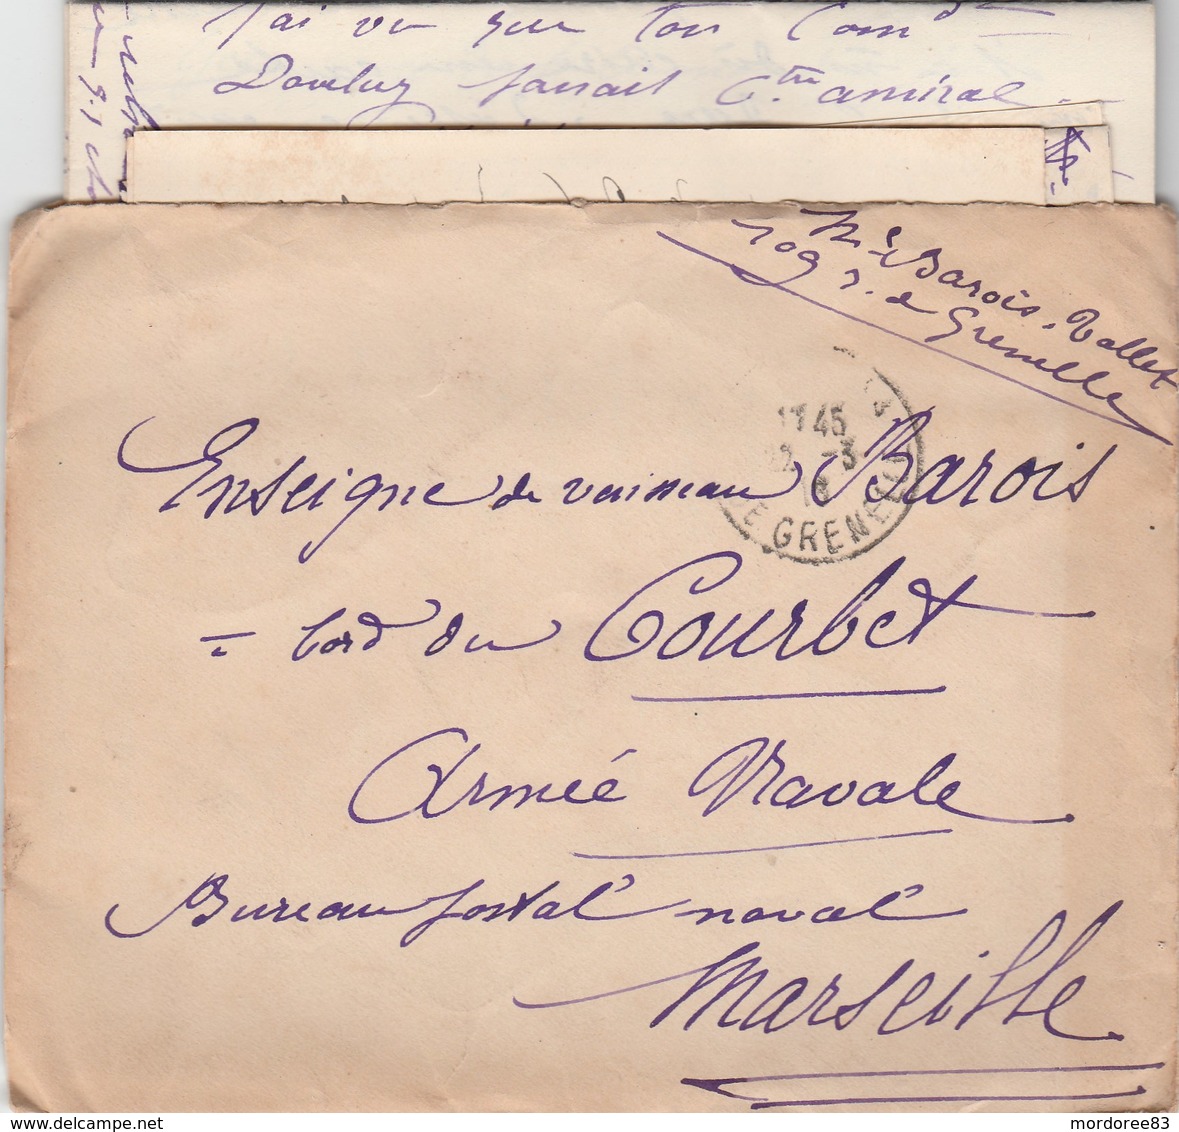 J'ai vu que ton Com^dt
passait C^tre amiral
M^e Barois. Vallet
109 r. de Grenelle
17 45
22 -3
DE GRENELLE
Enseigne de vaisseau Barois
= bord du Courbet
Armée Navale
Bureau postal naval
Marseille
mordoree83